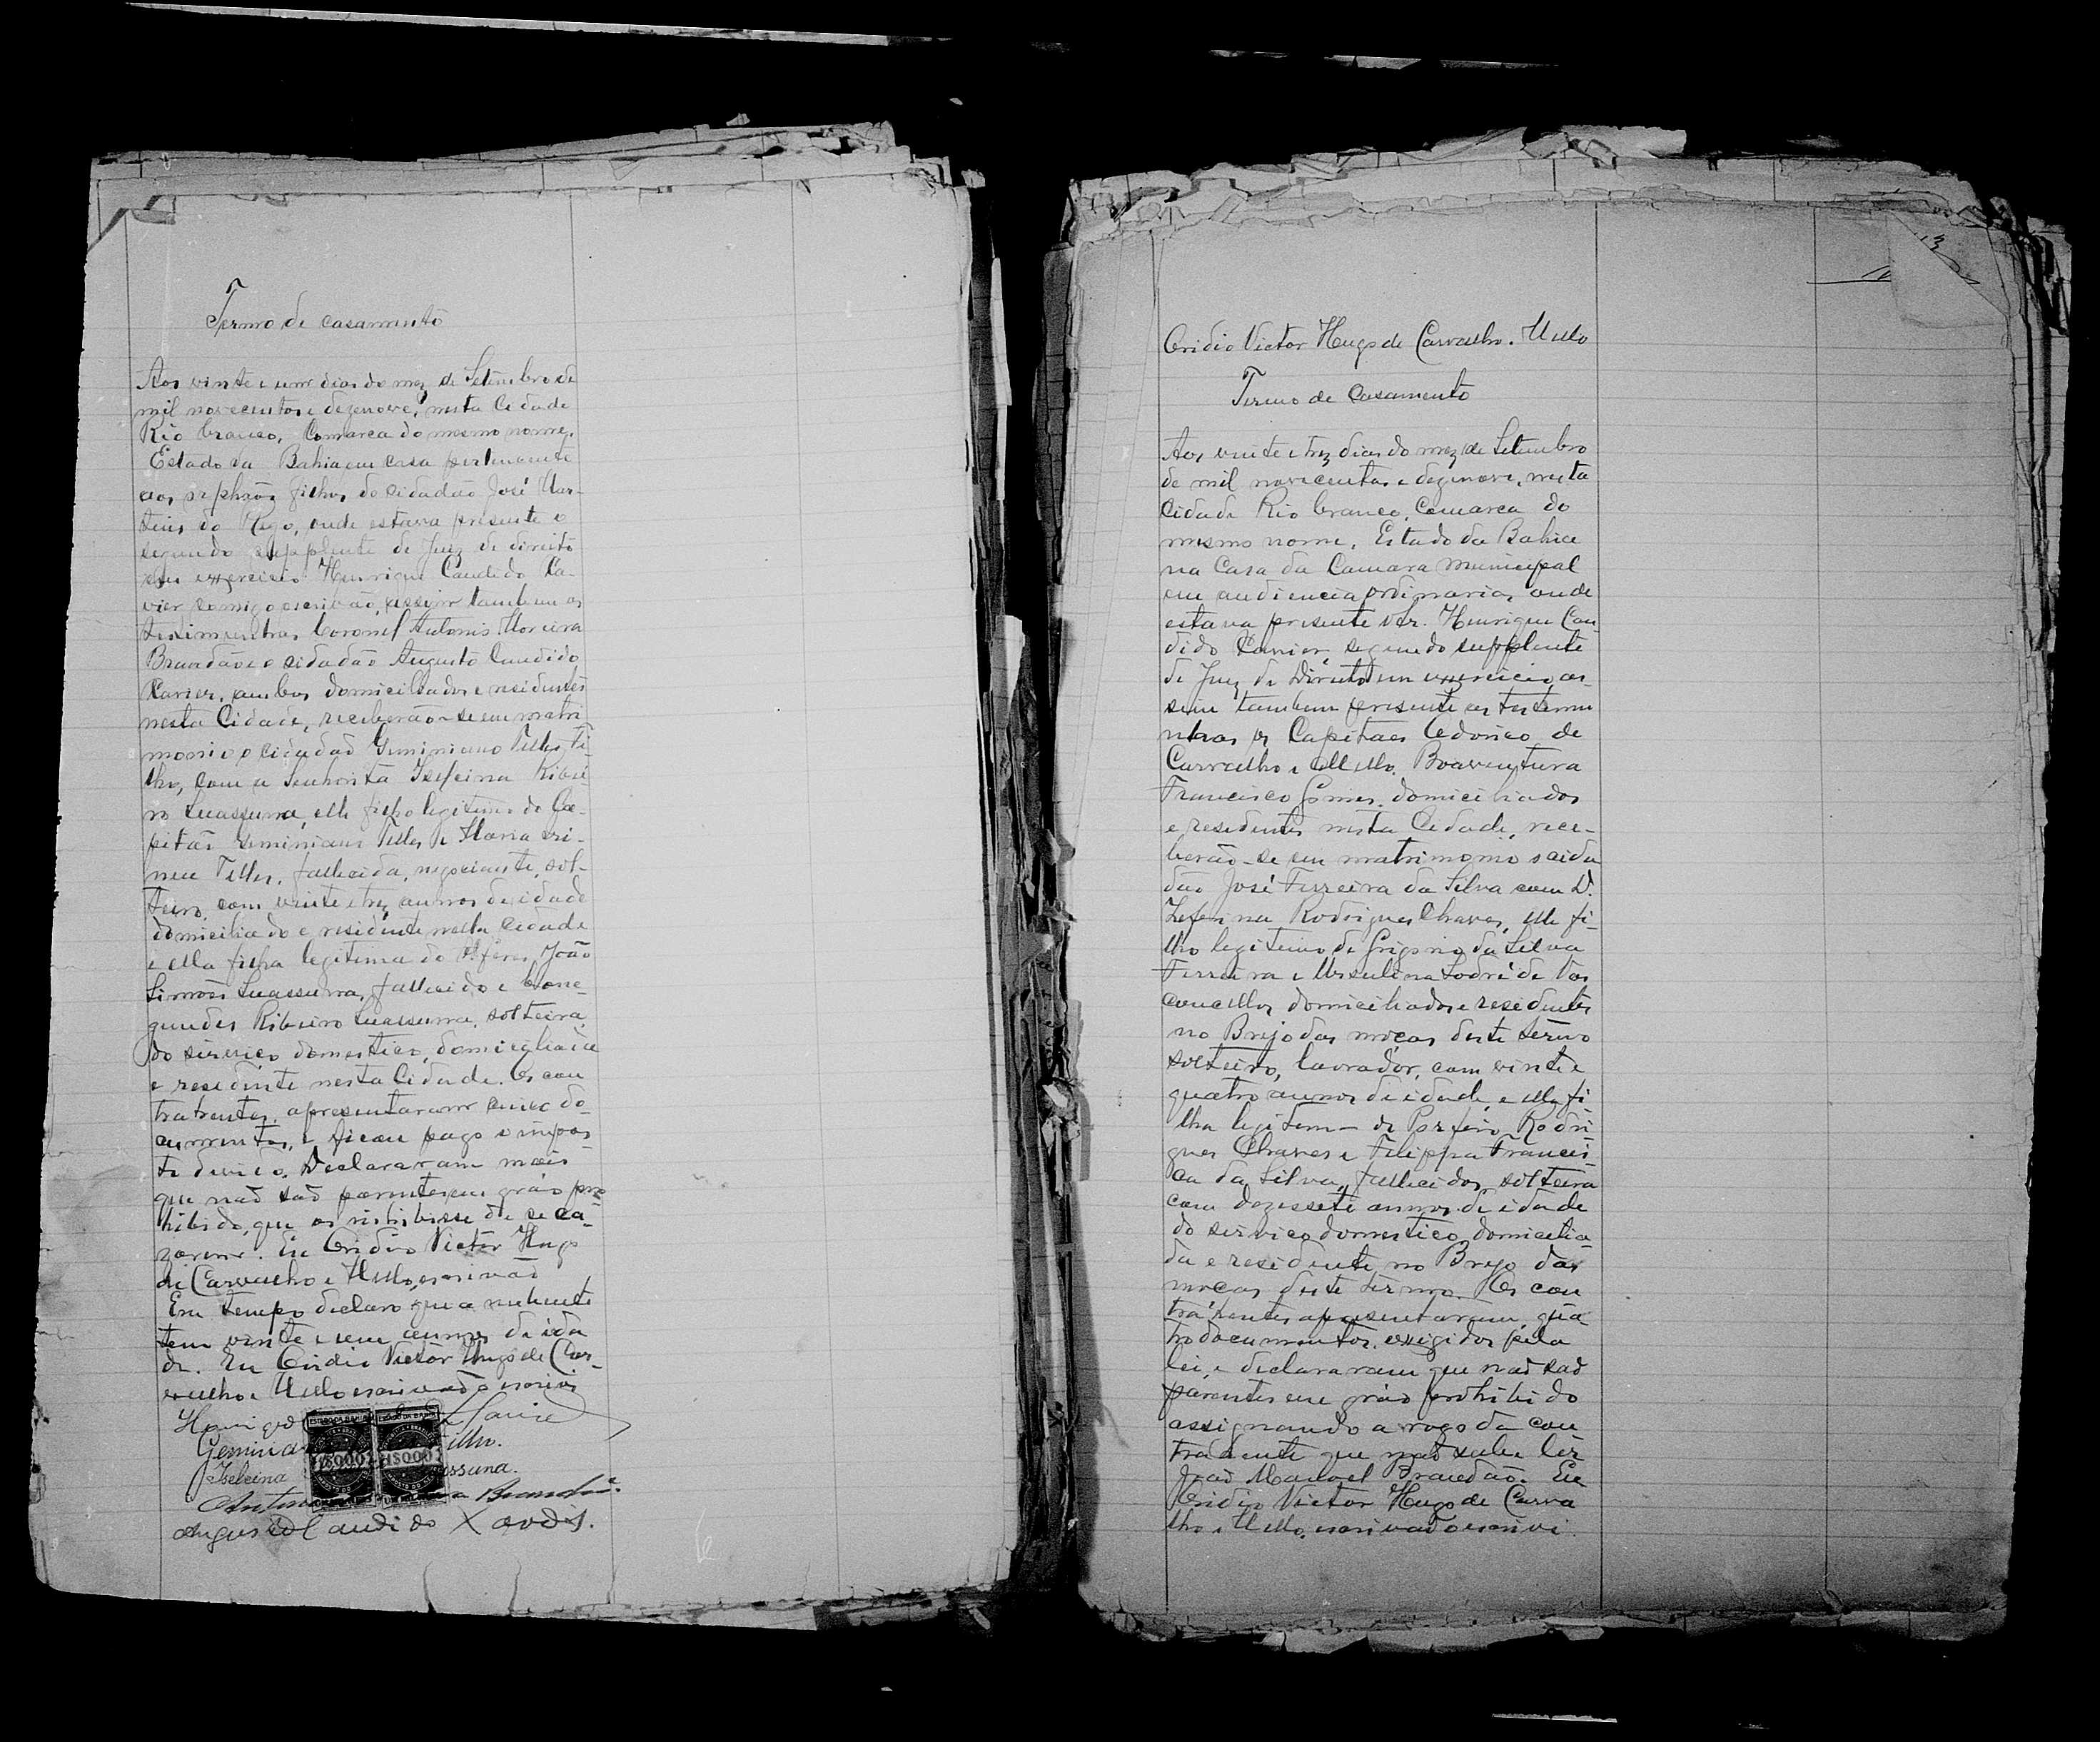 Termo de casamento
Aos vinte e um dias do mez de Setembro de
mil novecentos e dezenove, nesta Cidade
Rio branco, Comarca do mesmo nome,
Estado da Bahia em casa pertencente
aos orphãos filhos do cidadão José Mar-
tins do Rego, onde estava presente o
segundo supplente de Juiz de direito
em exzercicio Henrique Candido Xa-
vier comigo escrivão, assim tambem as
testimunhas Coronel Antonio Moreira
Brandão e o cidadão Augusto Candido
Xavier, ambos domiciliados e residentes
nesta Cidade, receberão-se em matri
monio o cidadão Geminiano Telles Fi
lho, com a Senhorita Iselcina Ribei
ro Suassuna, elle filho legitimo do Ca-
pitão Geminiano Telles e Maria Eri-
nea Telles, fallecida, negociante, sol-
teiro, com vinte e trez annos de idade
domiciliado e residente nesta Cidade
e ella filha legitima do Alferes João
Simões Suassuna, fallecido e Cone-
gundes Ribeiro Suassuna, solteira,
do serviço domestico, domicilhada
e residente nesta Cidade. Os con
trahentes apresentaram cinco do-
cumentos, e ficou pago o impos
to devido. Declararam mais
que não são parentes em gráo pro
hibido, que os inhibisse de se ca-
zarem. Eu Ovidio Victor Hugo
de Carvalho e Mello, escrivão
Em tempo declaro que a nubente
tem vinte e um annos de ida
de. Eu Ovidio Victor Hugo de Car-
valho e Mello escrivão o escrivi
Henrique Xavier
Gemin Filho.
Iselcina assuna.
ESTADO DA BAHIA ESTADO DA BAHIA
1$000 1$000
Antonio a Brandão.
Augusto Candido Xavier.
Ovidio Victor Hugo de Carvalho. Mello
Termo de Casamento
Aos vinte e trez dias do mez de Setembro
de mil novecentos e dezenove, nesta
Cidade Rio branco, Comarca do
mesmo nome, Estado da Bahia
na Casa da Camara Municipal
em audiencia ordinaria, onde
estava presente o Sr. Henrique Can
dido Xavier segundo supplente
de Juiz de Direito em exzercicio, as-
sim tambem presente as testemu
nhas os Capitães Edorico de
Carvalho e Mello, Boaventura
Francisco Gomes, domiciliados
e residentes nesta Cidade, rece-
berão-se em matrimonio o cida
dão José Ferreira da Silva com D.
Zeferina Rodrigues Chaves, elle fi-
lho legitimo de Grigorio da Silva
Ferreira e Ursulina Sodré de Vas
concellos domiciliados e residentes
no Brejo das moças deste termo
solteiro, lavrador, com vinte e
quatro annos de idade, e ella fi
lha legitima de Porfirio Rodri-
gues Chaves e Filippa Francis-
ca da Silva, fallecidos, solteira
com dezessete annos de idade
do serviço domestico, domicilia-
da e residente no Brejo das
moças deste termo. Os con
trahentes apresentaram qua
tro documentos, exzigidos pela
lei, e declararam que não são
parentes em gráo prohibido
assignando a rogo da con
trahente que não sabe lêr
João Manoel Brandão. Eu
Ovidio Victor Hugo de Carva
lho e Mello, escrivão o escrivi